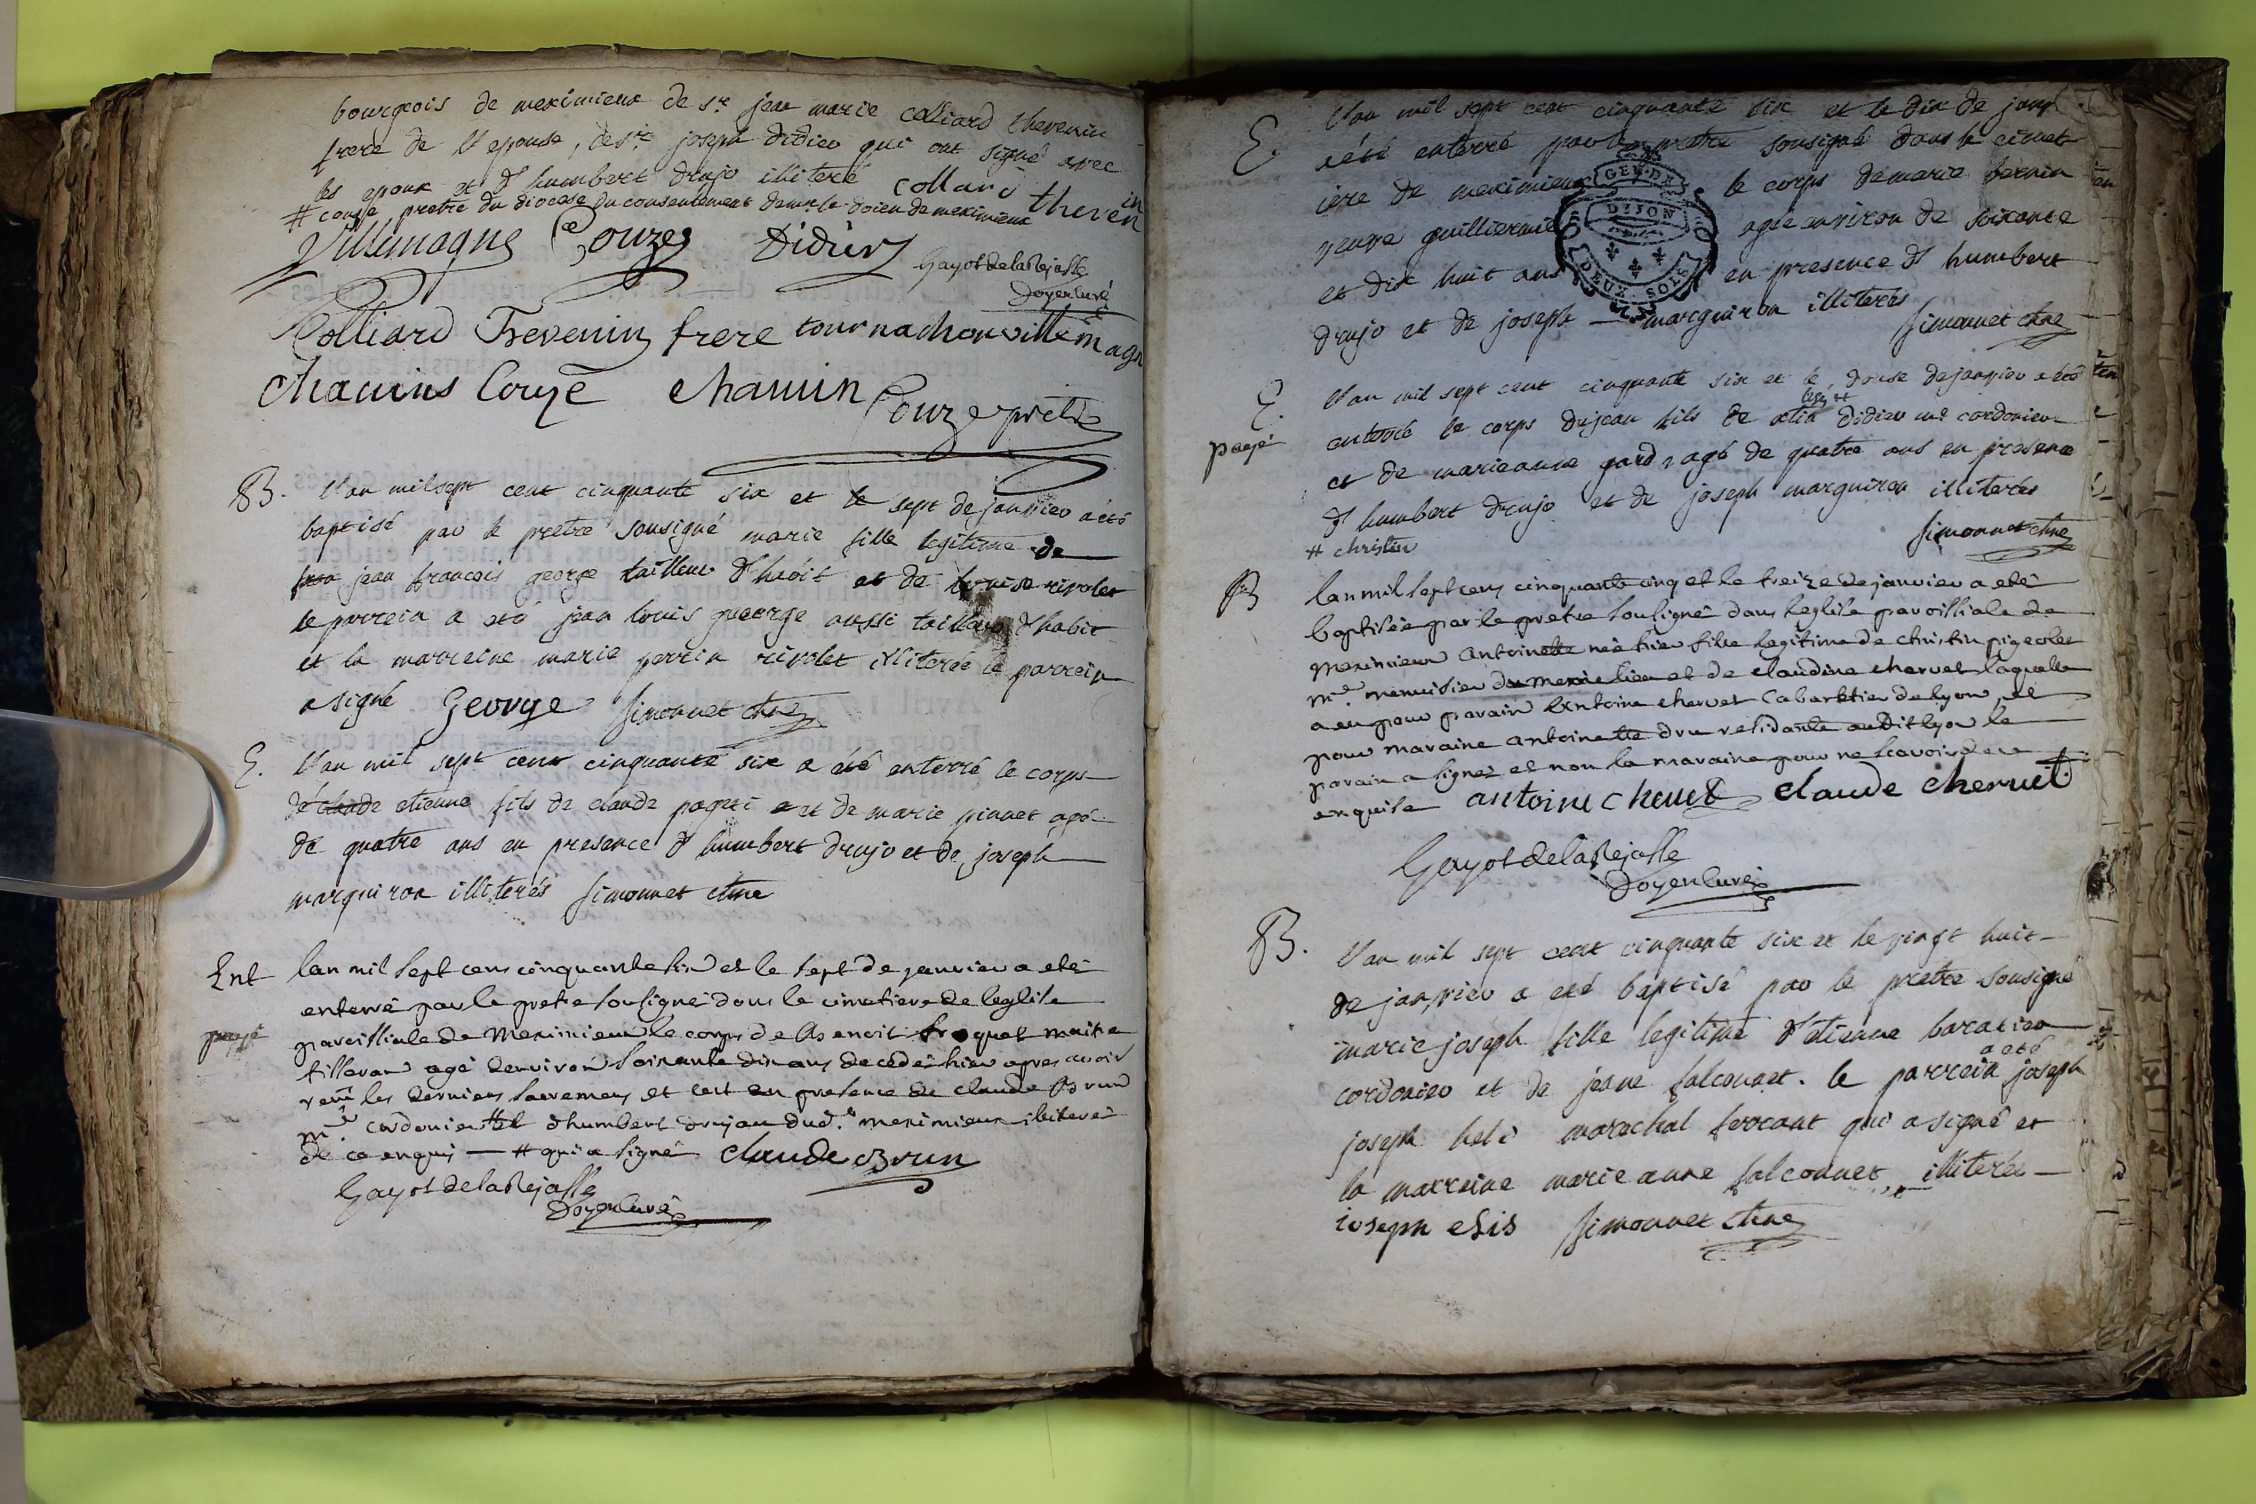 bourgeois de meximieux de sr jean marie colliard thevenin
frere de l'epouse, de sr joseph didier qui ont signé avec
les epoux et d'humbert drujo illiteré collard thevenin
# couzé pretre du diocese du consentement de mr le doien de meximieux
Villemagne Couzes Didier
Gayot de la Rejasse
Doyen Curé
Colliard Trevenin frere tournachon villemagn
chacuins Couzé chamin
Couze pretre
B. l'an mil sept cent cinquante six et le sept de janvier a eté
baptisé par le pretre sousigné marie fille legitime de
jean francois george tailleur d'habit et de louise rivolet
le parrein a eté jean louis george aussi tailleur d'habit
et la marreine marie perrin rivolet illiterée le parrein
a signé George Simonnet
E. l'an mil sept cent cinquante six a été enterré le corps
de claude etienne fils de claude pageti et de marie pinnet agé
de quatre ans en presence d'humbert drujo et de joseph
marguiron illiterés Simonnet
Ent lan mil sept cens cinquante six et le sept de janvier a eté
enterré par le pretre sousigné dans le cimetiere de leglise
payé paroissiale de Meximieux le corps de Benoit froquet maitre
tisseran agé denviron soixante dix ans decedé hier apres avoir
receu les derniers sacremens et cert en presence de claude Brun
me cordonier # et d'humbert drujau dud. meximieux illiteré
de ce enquis — # qui a signé claude Brun
Gayot de la Rejasse
Doyen Curé
E. l'an mil sept cent cinquante six et le dix de janv
a été enterré par le pretre sousigné dans le cimet
iere de meximieux le corps de marie bernin
veuve guillermin agée environ de soixante
et dix huit ans en presence d'humbert
drujo et de joseph — marguiron illiterés
Simonnet
GEN. DE
DIJON
DEUX SOLS
E. l'an mil sept cent cinquante six et le douse de janvier a eté
payé enterré le corps de jean fils de didier me cordonier
et de marieanne gard, agé de quatre ans en presence
d'humbert drujo et de joseph marguiron illiterés
# christin Simonnet
B lan mil sept cens cinquante cinq et le treize de janvier a eté
baptisée par le pretre sousigné dans leglise paroissiale de
Meximieux Antoinette née hier fille legitime de christin pigeolet
me menuisier de meximieu et de claudine chervet laquelle
a eu pour parain Antoine chervet cabarettier de lyon et
pour maraine antoinette dru residante audit lyon le
parain a signez et non la maraine pour ne scavoir de ce
enquise antoine chervet claude chervet
Gayot de la Rejasse
Doyen Curé
B. l'an mil sept cent cinquante six et le vingt huit
de janvier a eté baptisé par le pretre sousigné
marie joseph fille legitime d'etienne baratier
cordonier et de jeane falconnet. le parrein a eté joseph
joseph helis marechal ferrant qui a signé et
la marreine marie anne falconnet, illiterée
ioseph elis Simonnet